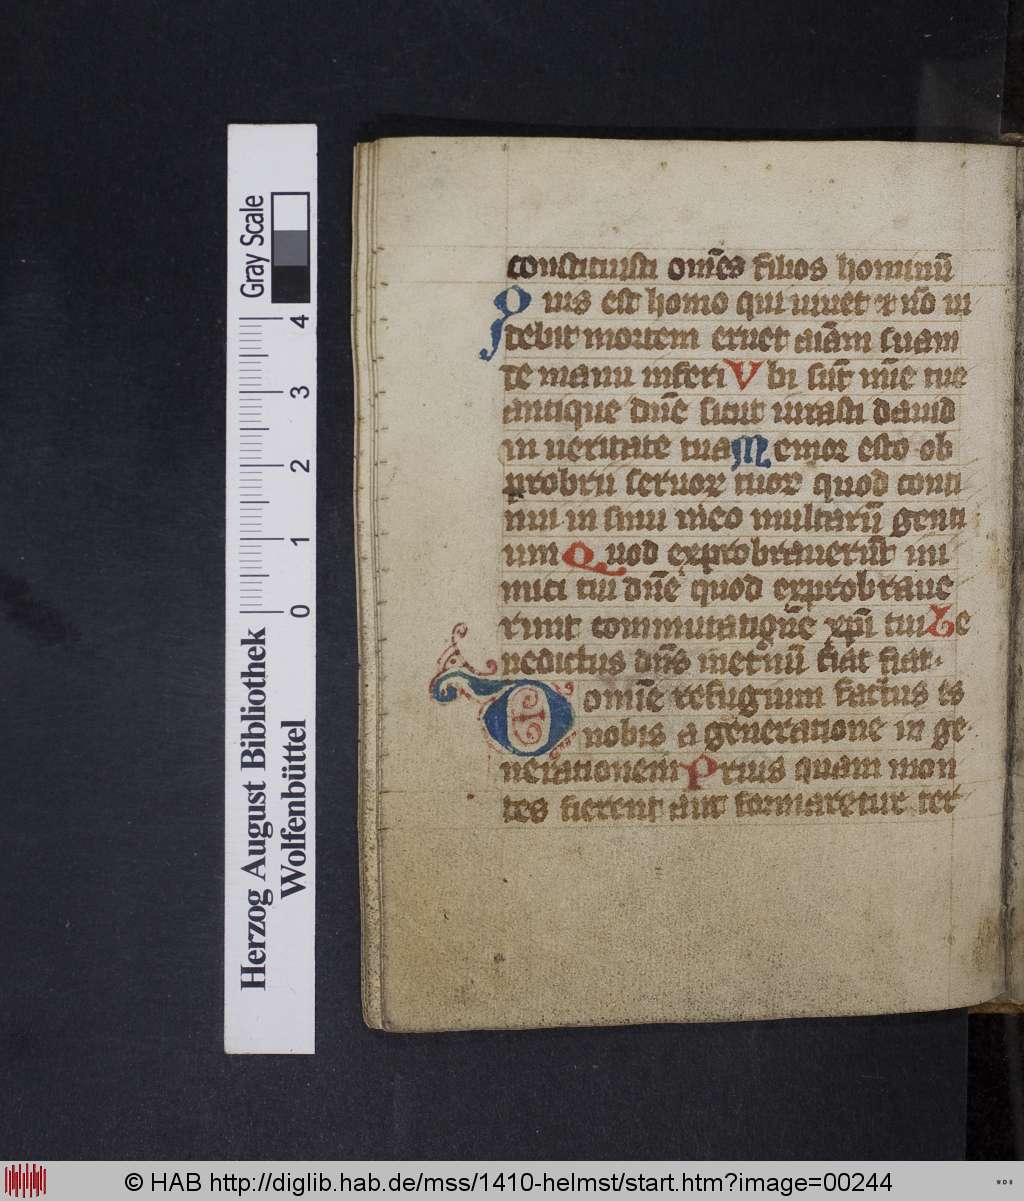 constituisti om̄es filios hominū
Quis est homo qui uiuet ⁊ nō ui
debit mortem eruet aīam suam
de manu inferi Vbi sūt mīe tue
antique dn̄e sicut iurasti dauid
in ueritate tua Memor esto ob
probrii seruoꝝ tuoꝝ quod conti
nui in sinu meo multarū genti
um Quod exprobrauerūt ini
mici tui dn̄e quod exprobraue
runt commutationē xp̄i tui Be
nedictus dn̄s in eternū fiat fiat
Domine refugium factus es
nobis a generatione in ge
nerationem Prius quam mon
tes fierent aut formaretur ter
Herzog August Bibliothek
Wolfenbüttel
Gray Scale
0 1 2 3 4
© HAB http://diglib.hab.de/mss/1410-helmst/start.htm?image=00244